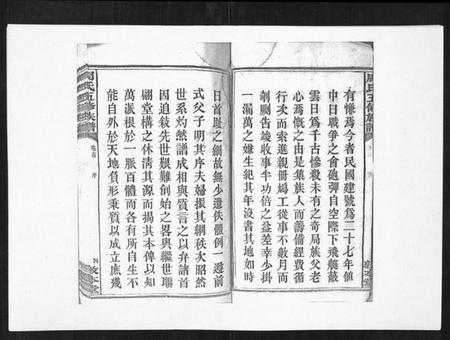 有慷焉今者民國建號為二十七年値
中日戰爭之會砲彈自空際下飛艇蔽
雲日為千古慘殺未有之奇局族父老
心焉慨之由是集族人而籌備經費循
行次而索進親冊鳩工從事不數月而
剞劂告竣收事半功倍之益差幸少掛
一漏萬之嫌生紀其年沒書其地如時
日首尾之綱故無少遺佚體例一遵前
式父子明其序夫婦振其綱秩次昭然
世系灼然譜成相與質言之以弁諸首
因追敍先世艱難創始之畧與繼世聯
翩堂構之休清其源而揭其本俾以知
萬派根於一脈百體而各有所自生不
能自外於天地負形秉質以成立庶幾
周氏五修族譜
卷首
序
四
敦本堂